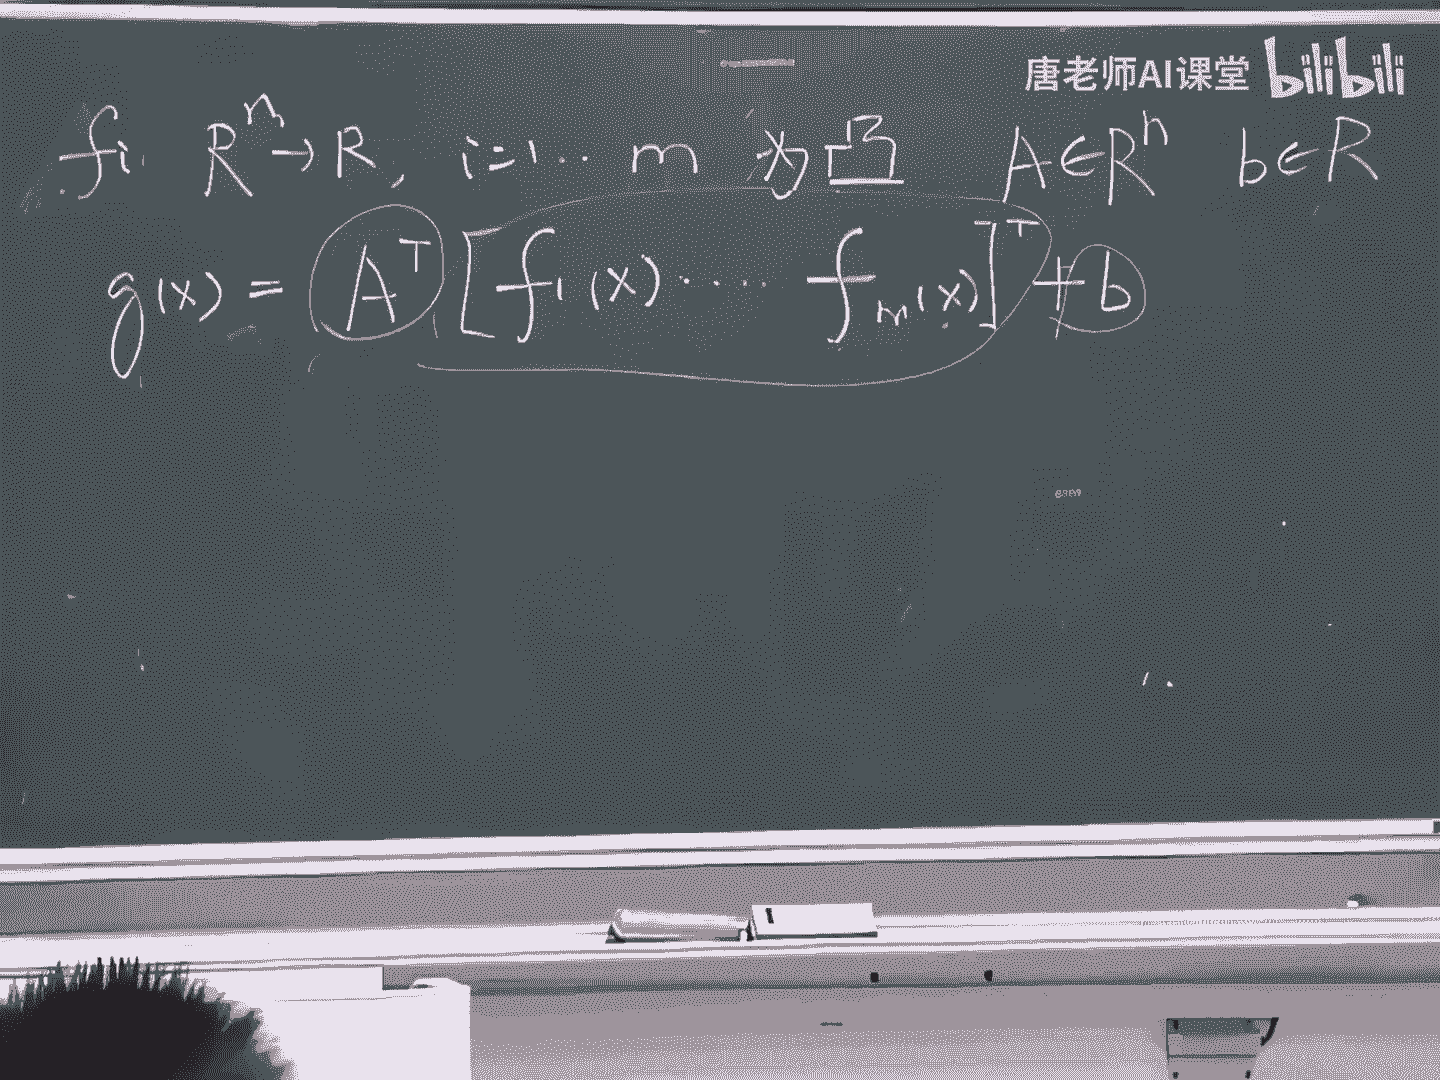 唐老师AI课堂 bilibili
fi R^n→R, i=1⋯m 为凸 A∈R^n b∈R
g(x) = A^T [f1(x)⋯⋯fm(x)]^T + b